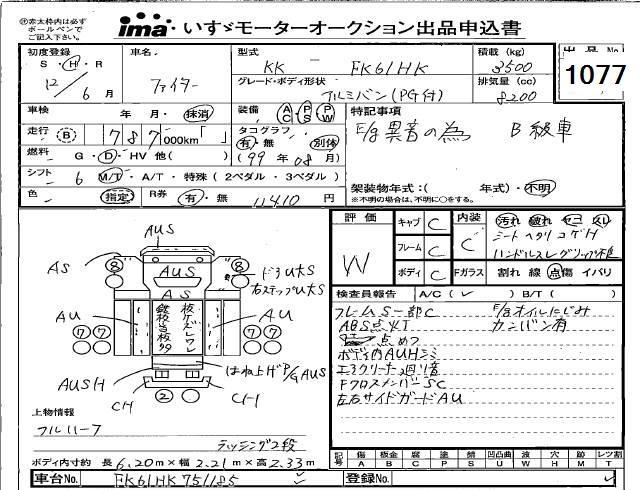 赤太枠内は必ず
ボールペンで
ご記入下さい。
ima いすゞモーターオークション出品申込書
初度登録 車名 型式 積載 (kg) 出品No
S・H・R ファイター KK - FK61HK 3500 1077
12年 6月 グレード・ボディ形状 アルミバン(PG付) 排気量 (cc) 8200
車検 年 月・抹消 装備 AC PS PW 特記事項
走行 B 787 000km タコグラフ 有・無 別体 E/g異音の為 B級車
燃料 G・D・HV 他( ) (99年08月)
シフト 6 M/T・A/T・特殊(2ペダル・3ペダル) 架装物年式:( 年式)・不明
色 指定 R券 有・無 11410円 ※不明の場合は、不明に○をする。
評価 W キャブ C 内装 C 汚れ 破れ ヤニ スレ
フレーム C シートヘタリコゲH
ハンドルスレ
ボディ C Fガラス 割れ 線 点傷 イバリ
検査員報告 A/C( ✓ ) B/T( )
フレームS一部C E/gオイルにじみ
ABS点灯 カンバン有
ボディ内AUHシミ
FクロスメンバーSC
左右サイドガードAU
AUS
AS 8 AUS 8 ドラU大S
右ステップU大S
AS
AU AU
7 7 7 7
はね上げP/GAUS
AUSH
CH 2 CH
上物情報
フルハーフ
ラッシング2段
ボディ内寸約 長 6.20m×幅 2.21m×高 2.33m
記号 傷 A 板金 B 腐 C 塗 P 錆 S 凹凸曲 U 波 W 穴 H 跡 M レツ割 T
車台No. FK61HK751185 登録No.